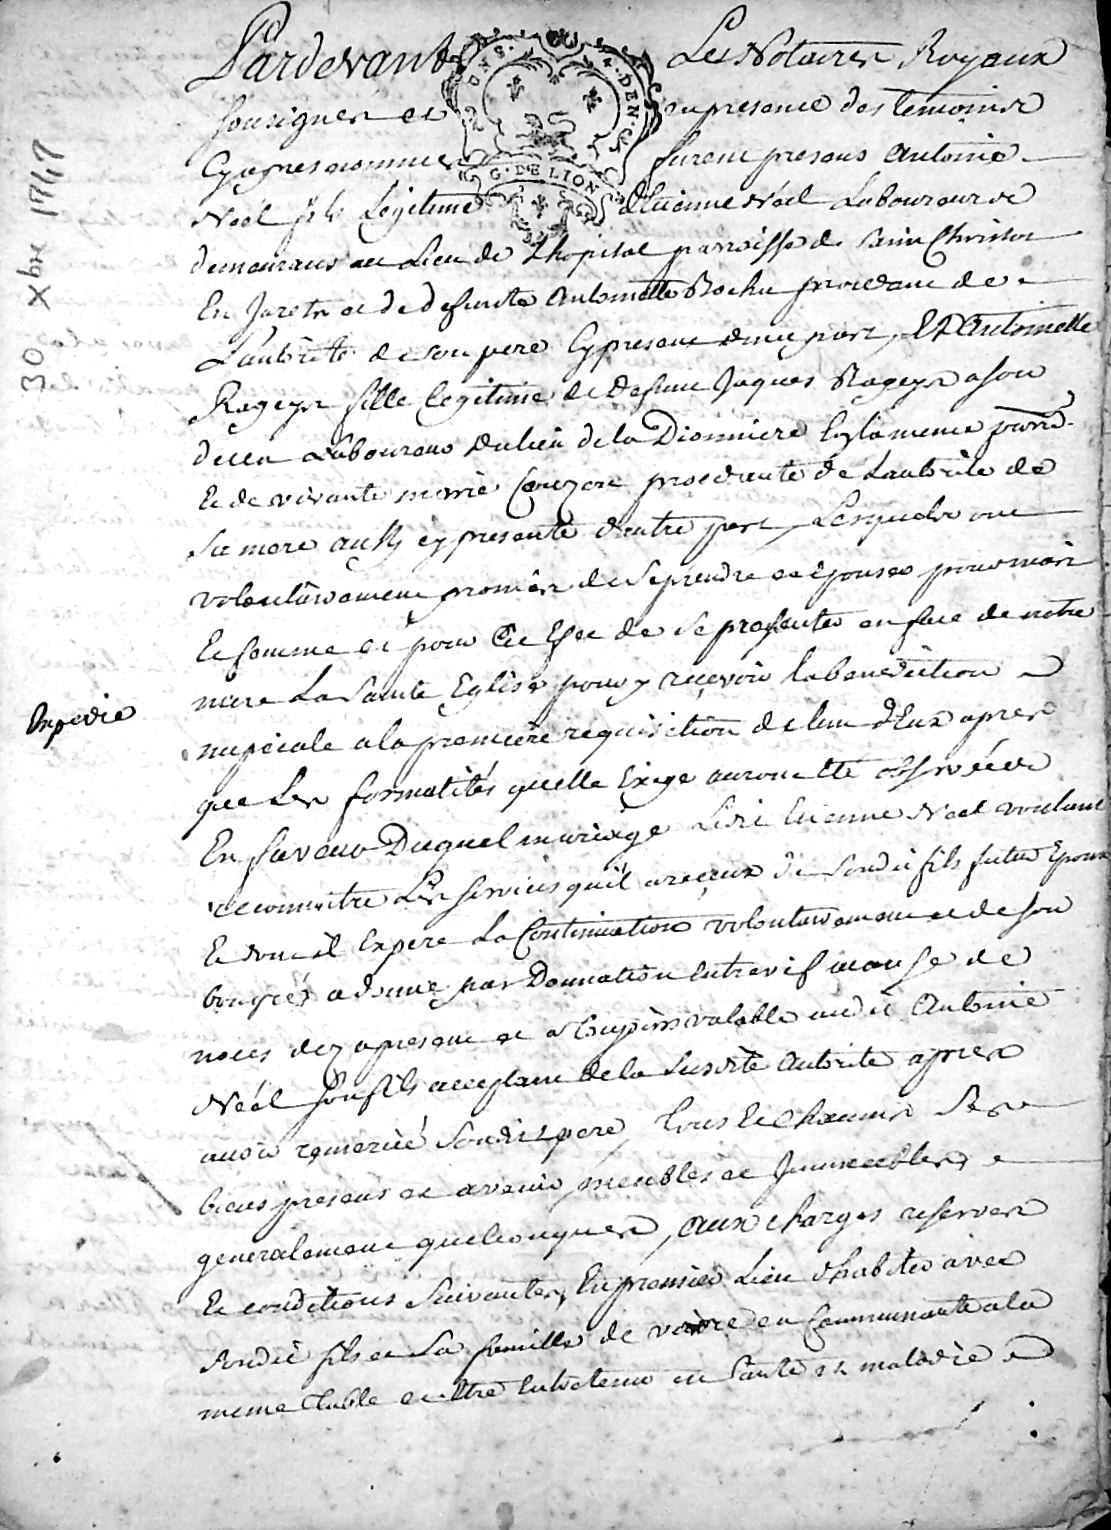 Pardevant Les Notaires Royaux
soussignes et en presence des temoins
Cy apres nommes furent presens Antoine
Noël fils Legitime d'Etienne Noël Laboureur
demeurans au Lieu de Lhopital parroisse de Saint Christot
En Jarets et de defunte Antoinette Bochu procedant de
L'autorité de son pere Cy present d'une part, Et Antoinette
Rageys fille legitime de defunt Jaques Rageys a son
deces Laboureur du lieu de la Dionniere Susd. parr.
Et de vivante marie Couzon procedante de Lautorité de
Sa mere aussy cy presente d'autre part, Lesquels ont
volontairement promis de se prendre et epouser pour mari
Et femme et pour Cet Effet de se presenter en face de notre
mere La Sainte Eglise pour y recevoir la benediction
nuptiale a la premiere requisition de l'un d'Eux apres
que Les formalités quelle Exige auront Eté observées
En faveur Duquel mariage Ledit Etienne Noël voulant
reconnoitre Les services qu'il a reçeux de Sondit fils futur Epoux
Et dont il Espere La Continuation volontairement et de son
bon gré a donné par Donnation Entre vif a cause de
noces dez apresent et a toujours valable audit Antoine
Noël Son fils acceptant de la Susdite Autorité apres
avoir remercié Sondit pere, Tous Et Chacuns Ses
biens presens et avenir, meubles et Immeubles
generalement quelconques, aux charges reserves
Et conditions Suivantes, En premier Lieu d'habiter avec
Sondit fils et Sa famille de vivre en Communauté a la
meme Table et Etre Entretenu en Santé et maladie
30 xbre 1747
Expedié
G. DE LION